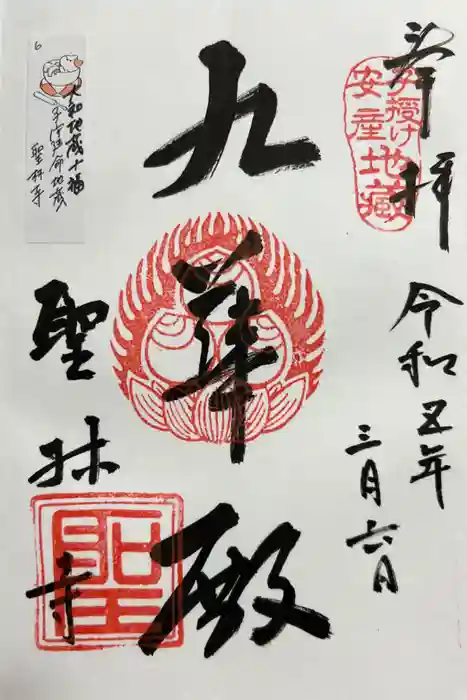 奉拝
子授け
安産地蔵
令和五年
三月六日
九華殿
聖林寺
聖
6
大和地蔵十福
子安延命地蔵
聖林寺